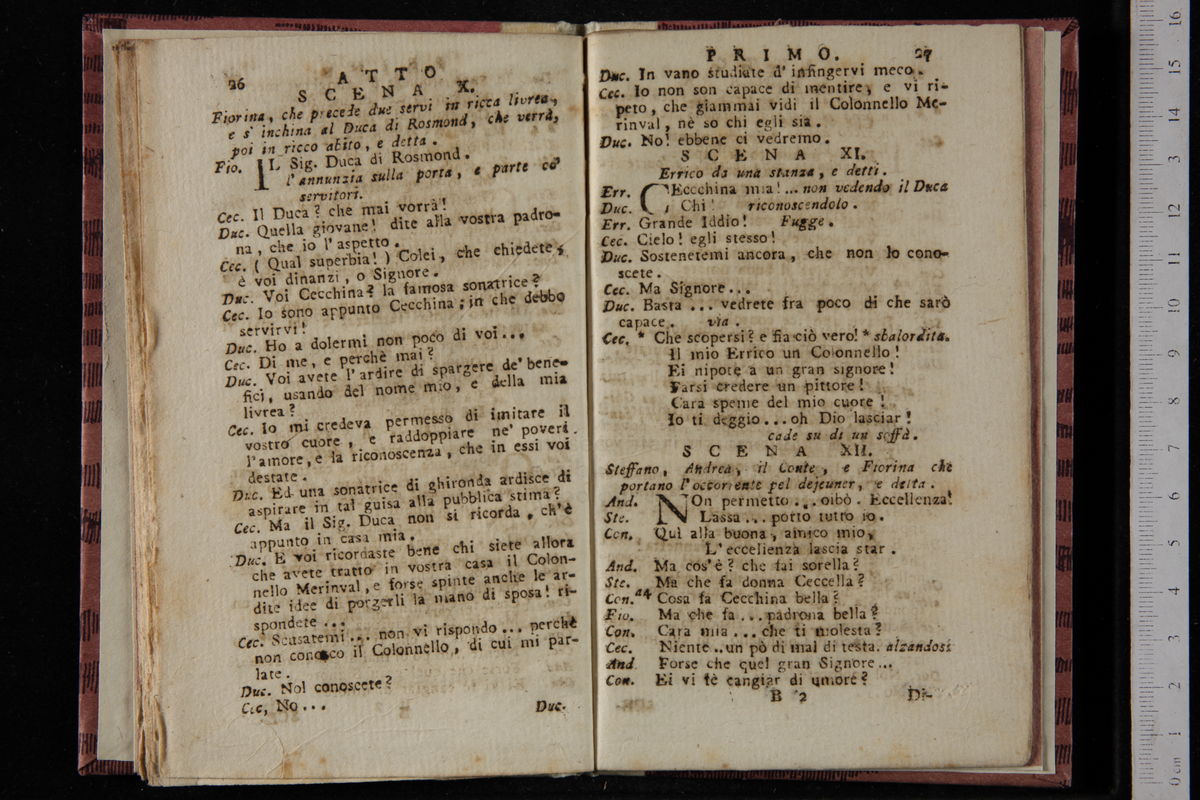 26
ATTO
SCENA X.
Fiorina, che precede due servi in ricca livrea,
e s' inchina al Duca di Rosmond, che verrà,
poi in ricco abito, e detta.
Fio. IL Sig. Duca di Rosmond.
l'annunzia sulla porta, e parte co'
servitori.
Cec. Il Duca? che mai vorrà!
Duc. Quella giovane! dite alla vostra padro-
na, che io l'aspetto.
Cec. ( Qual superbia! ) Colei, che chiedete,
è voi dinanzi, o Signore.
Duc. Voi Cecchina? la famosa sonatrice?
Cec. Io sono appunto Cecchina; in che debbo
servirvi!
Duc. Ho a dolermi non poco di voi...
Cec. Di me, e perchè mai?
Duc. Voi avete l'ardire di spargere de' bene-
fici, usando del nome mio, e della mia
livrea?
Cec. Io mi credeva permesso di imitare il
vostro cuore, e raddoppiare ne' poveri
l'amore, e la riconoscenza, che in essi voi
destate.
Duc. Ed una sonatrice di ghironda ardisce di
aspirare in tal guisa alla pubblica stima?
Cec. Ma il Sig. Duca non si ricorda, ch'è
appunto in casa mia.
Duc. E voi ricordaste bene chi siete allora
che avete tratto in vostra casa il Colon-
nello Merinval, e forse spinte anche le ar-
dite idee di porgerli la mano di sposa! ri-
spondete...
Cec. Scusatemi... non vi rispondo... perchè
non conosco il Colonnello, di cui mi par-
late.
Duc. Nol conoscete?
Cec, No...
Duc.
PRIMO. 27
Duc. In vano studiate d' infingervi meco.
Cec. Io non son capace di mentire, e vi ri-
peto, che giammai vidi il Colonnello Me-
rinval, nè so chi egli sia.
Duc. No! ebbene ci vedremo.
SCENA XI.
Errico da una stanza, e detti.
Err. CEccchina mia!... non vedendo il Duca
Duc. Chi! riconoscendolo.
Err. Grande Iddio! Fugge.
Cec. Cielo! egli stesso!
Duc. Sostenetemi ancora, che non lo cono-
scete.
Cec. Ma Signore...
Duc. Basta ... vedrete fra poco di che sarò
capace. via.
Cec. * Che scopersi? e fia ciò vero! * sbalordita.
Il mio Errico un Colonnello!
Ei nipote a un gran signore!
Farsi credere un pittore!
Cara speme del mio cuore!
Io ti deggio... oh Dio lasciar!
cade su di un soffà.
SCENA XII.
Steffano, Andrea, il Conte, e Fiorina che
portano l'occorrente pel dejeuner, e detta.
And. NOn permetto... oibò. Eccellenza!
Ste. Lassa... porto tutto io.
Con. Qui alla buona, amico mio,
L' eccellenza lascia star.
And. Ma cos'è? che fai sorella?
Ste. Ma che fa donna Ceccella?
Con. a4 Cosa fa Cecchina bella?
Fio. Ma che fa... padrona bella?
Con. Cara mia... che ti molesta?
Cec. Niente.. un pò di mal di testa. alzandosi
And. Forse che quel gran Signore...
Con. Ei vi fè cangiar di umore?
B 2 Di-